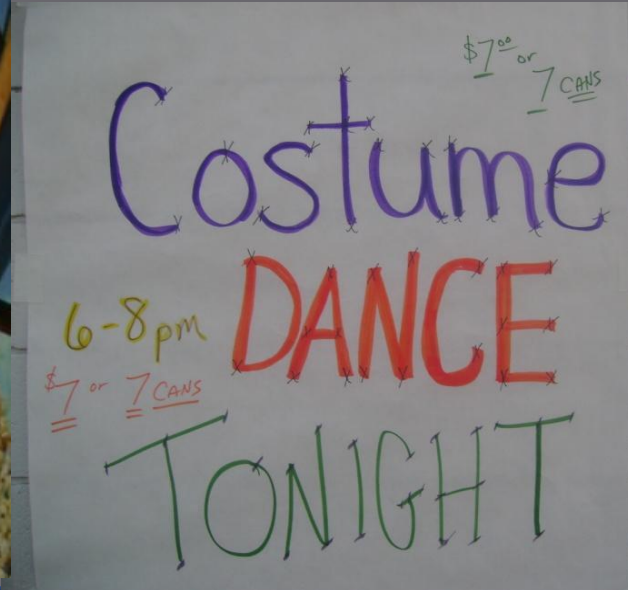 $7.00 or
7 CANS
Costume
DANCE
6-8pm
$7 or 7 CANS
TONIGHT